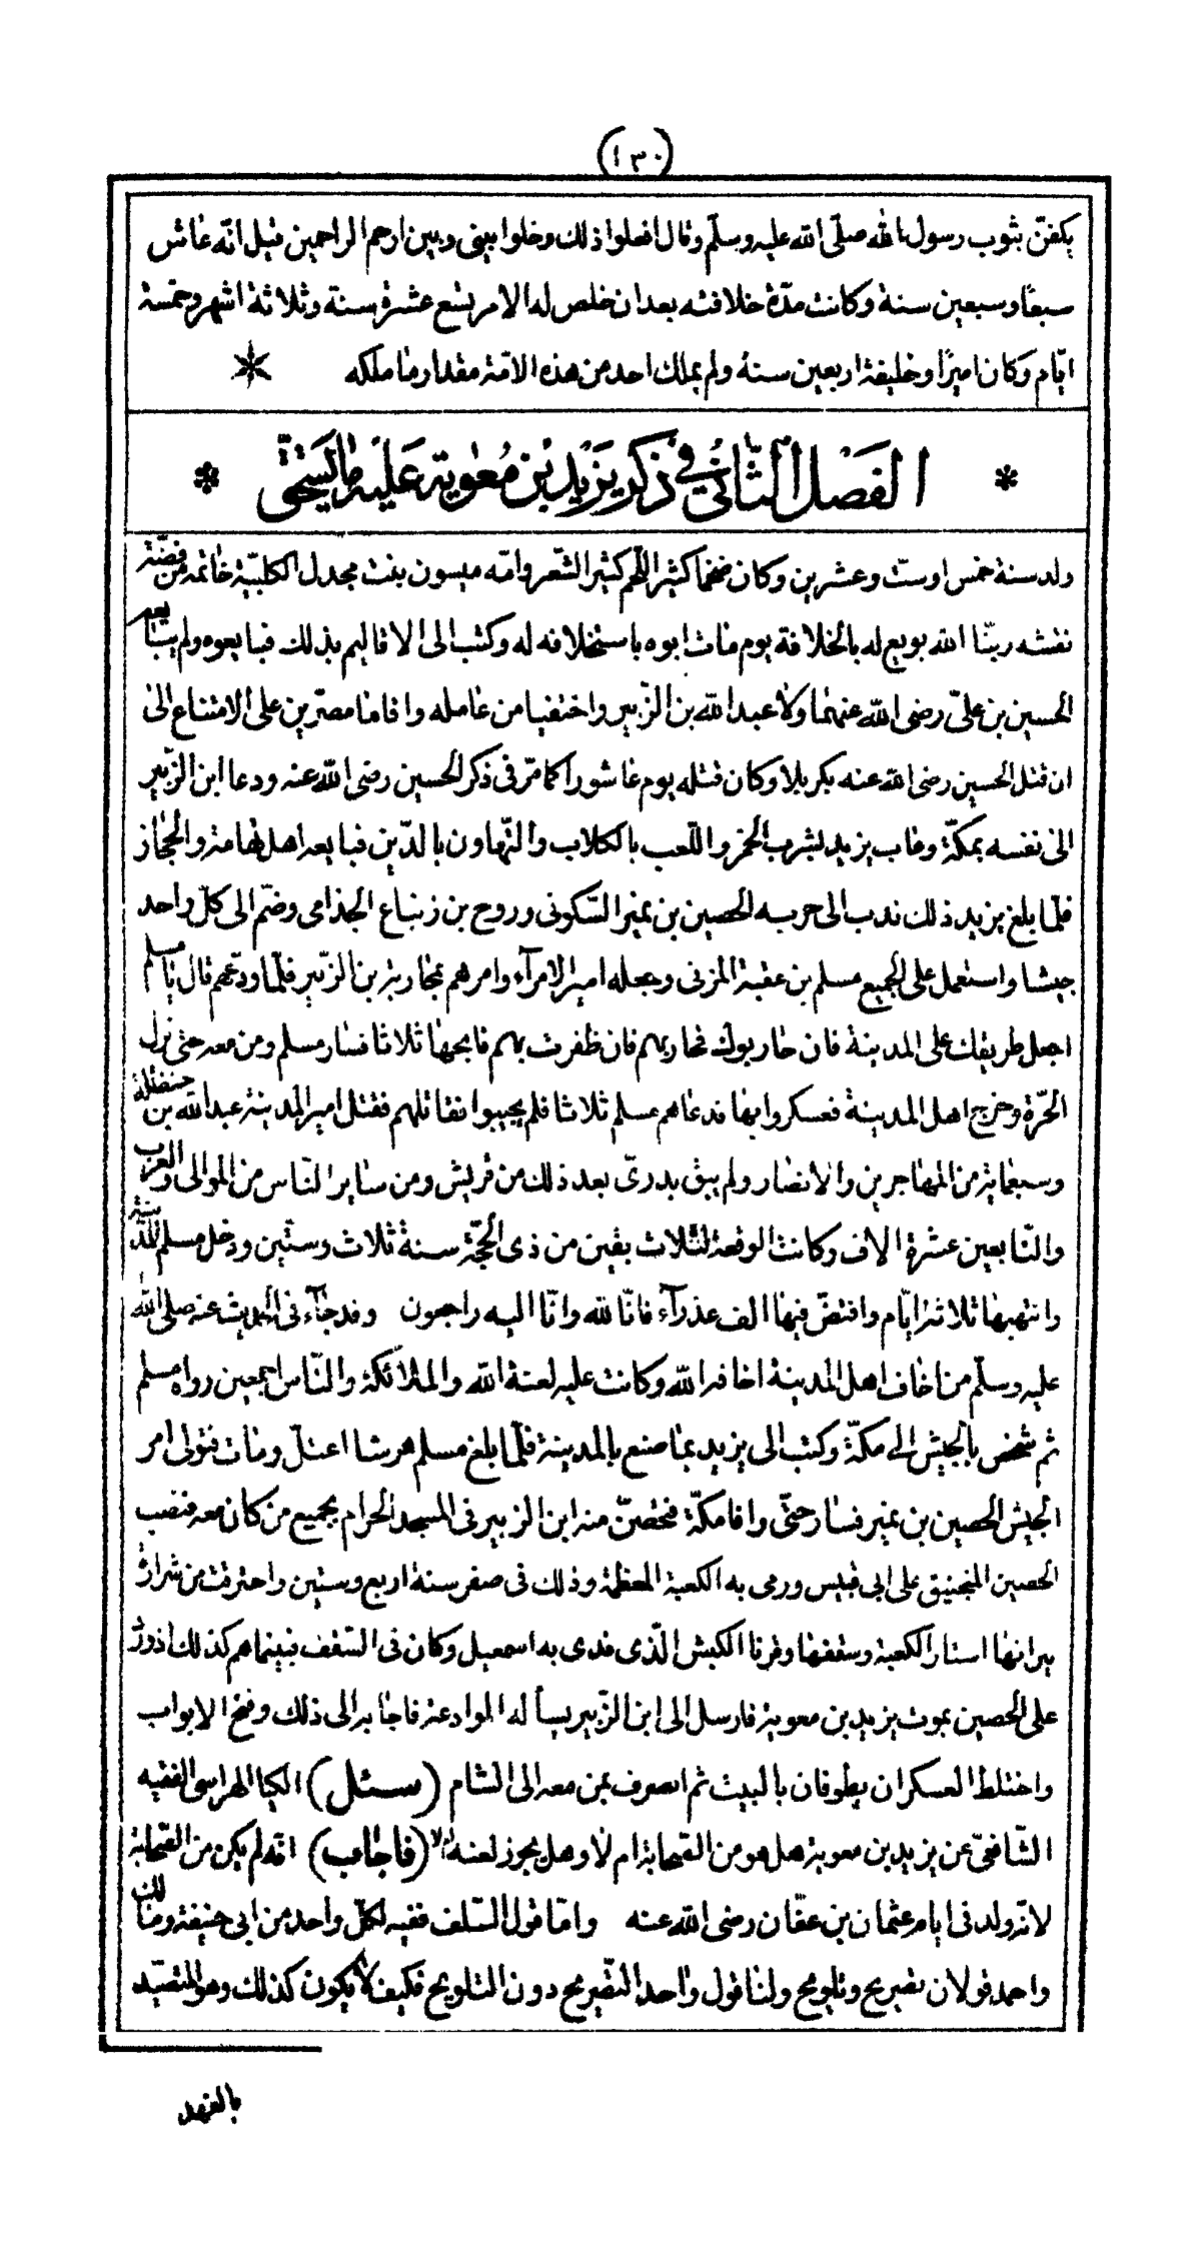 (١٣٠)
يكفن بثوب رسول الله صلّى الله عليه وسلّم وقال افعلوا ذلك وخلوا بيني وبين ارحم الراحمين قيل انّه عاش
سبعًا وسبعين سنة وكانت مدّة خلافته بعد ان خلص له الامر تسع عشرة سنة وثلاثة اشهر وخمسة
ايّام وكان اميرًا وخليفة اربعين سنة ولم يملك احد من هذه الامّة مقدار ما ملكه *
* الفَصْل الثّاني في ذكر يَزيد بْن مُعٰوية عَلَيْه مَا يَسْتَحِقّ *
ولد سنة خمس او ستّ وعشرين وكان ضخما كثير اللّحم كثير الشّعر وامّه ميسون بنت مجدل الكلبيّة خاتمه من فضّة
نقشه ربّنا الله بويع له بالخلافة يوم مات ابوه باستخلافه له وكتب الى الاقاليم بذلك فبايعوه ولم يبايعه
الحسين بن علىّ رضى الله عنهما ولا عبد الله بن الزّبير واختفيا من عامله واقاما مصرّين على الامتناع الى
ان قتل الحسين رضى الله عنه بكربلا وكان قتله يوم عاشورا كما مرّ فى ذكر الحسين رضى الله عنه ودعا ابن الزّبير
الى نفسه بمكّة وعاب يزيد بشرب الخمر واللّعب بالكلاب والتّهاون بالدّين فبايعه اهل تهامة والحجاز
فلمّا بلغ يزيد ذلك ندب الى حربه الحصين بن نمير السّكونى وروح بن زنباع الجذامى وضمّ الى كلّ واحد
جيشا واستعمل على الجميع مسلم بن عقبة المزنى وجعله امير الامرآء وامرهم بمحاربة بن الزّبير فلمّا ودّعهم قال يا مسلم
اجعل طريقك على المدينة فان حاربوك فحاربهم فان ظفرت بهم فابحها ثلاثا فسار مسلم ومن معه حتى نزل
الحرّة وخرج اهل المدينة فعسكروا بها فدعاهم مسلم ثلاثا فلم يجيبوا فقاتلهم فقتل امير المدينة عبد الله بن حنظلة
وسبعماية من المهاجرين والانصار ولم يبق بدرىّ بعد ذلك من قريش ومن ساير النّاس من الموالى والعرب
والتّابعين عشرة الاف وكانت الوقعة لثلاث بقين من ذى الحجّة سنة ثلاث وستّين ودخل مسلم المدينة
وانتهبها ثلاثة ايّام وافتضّ فيها الف عذرآء فانّا لله وانّا اليه راجعون وقد جآء فى الحديث عنه صلى الله
عليه وسلّم من اخاف اهل المدينة اخافه الله وكانت عليه لعنة الله والملآئكة والنّاس اجمعين رواه مسلم
ثم شخص بالجيش الى مكّة وكتب الى يزيد بما صنع بالمدينة فلمّا بلغ مسلم هرشا اعتلّ ومات فتولى امر
الجيش الحصين بن نمير فسار حتّى وافا مكّة فتحصّن منه ابن الزبير فى المسجد الحرام بجميع من كان معه فنصب
الحصين المنجنيق على ابى قبيس ورمى به الكعبة المعظمة وذلك فى صفر سنة اربع وستين واحترقت من شرارة
نيرانها استار الكعبة وسقفها وقرنا الكبش الّذى فدى به اسمعيل وكان فى السّقف فبينما هم كذلك اذ ورد
على الحصين بموت يزيد بن معوية فارسل الى ابن الزّبير يسأله الموادعة فاجابه الى ذلك وفتح الابواب
واختلط العسكران يطوفان بالبيت ثم انصرف بمن معه الى الشام (سئل) الكيا الهراسى الفقيه
الشّافعىّ عن يزيد بن معوية هل هو من الصّحابة ام لا وهل يجوز لعنه ام لا (فاجاب) انّه لم يكن من الصّحابة
لانّه ولد فى ايام عثمان بن عفّان رضى الله عنه وامّا قول السّلف ففيه لكلّ واحد من ابى حنيفة ومالك
واحمد قولان تصريح وتلويح ولنا قول واحد التّصريح دون التلويح فكيف لا يكون كذلك وهو المتصيّد
بالفهد